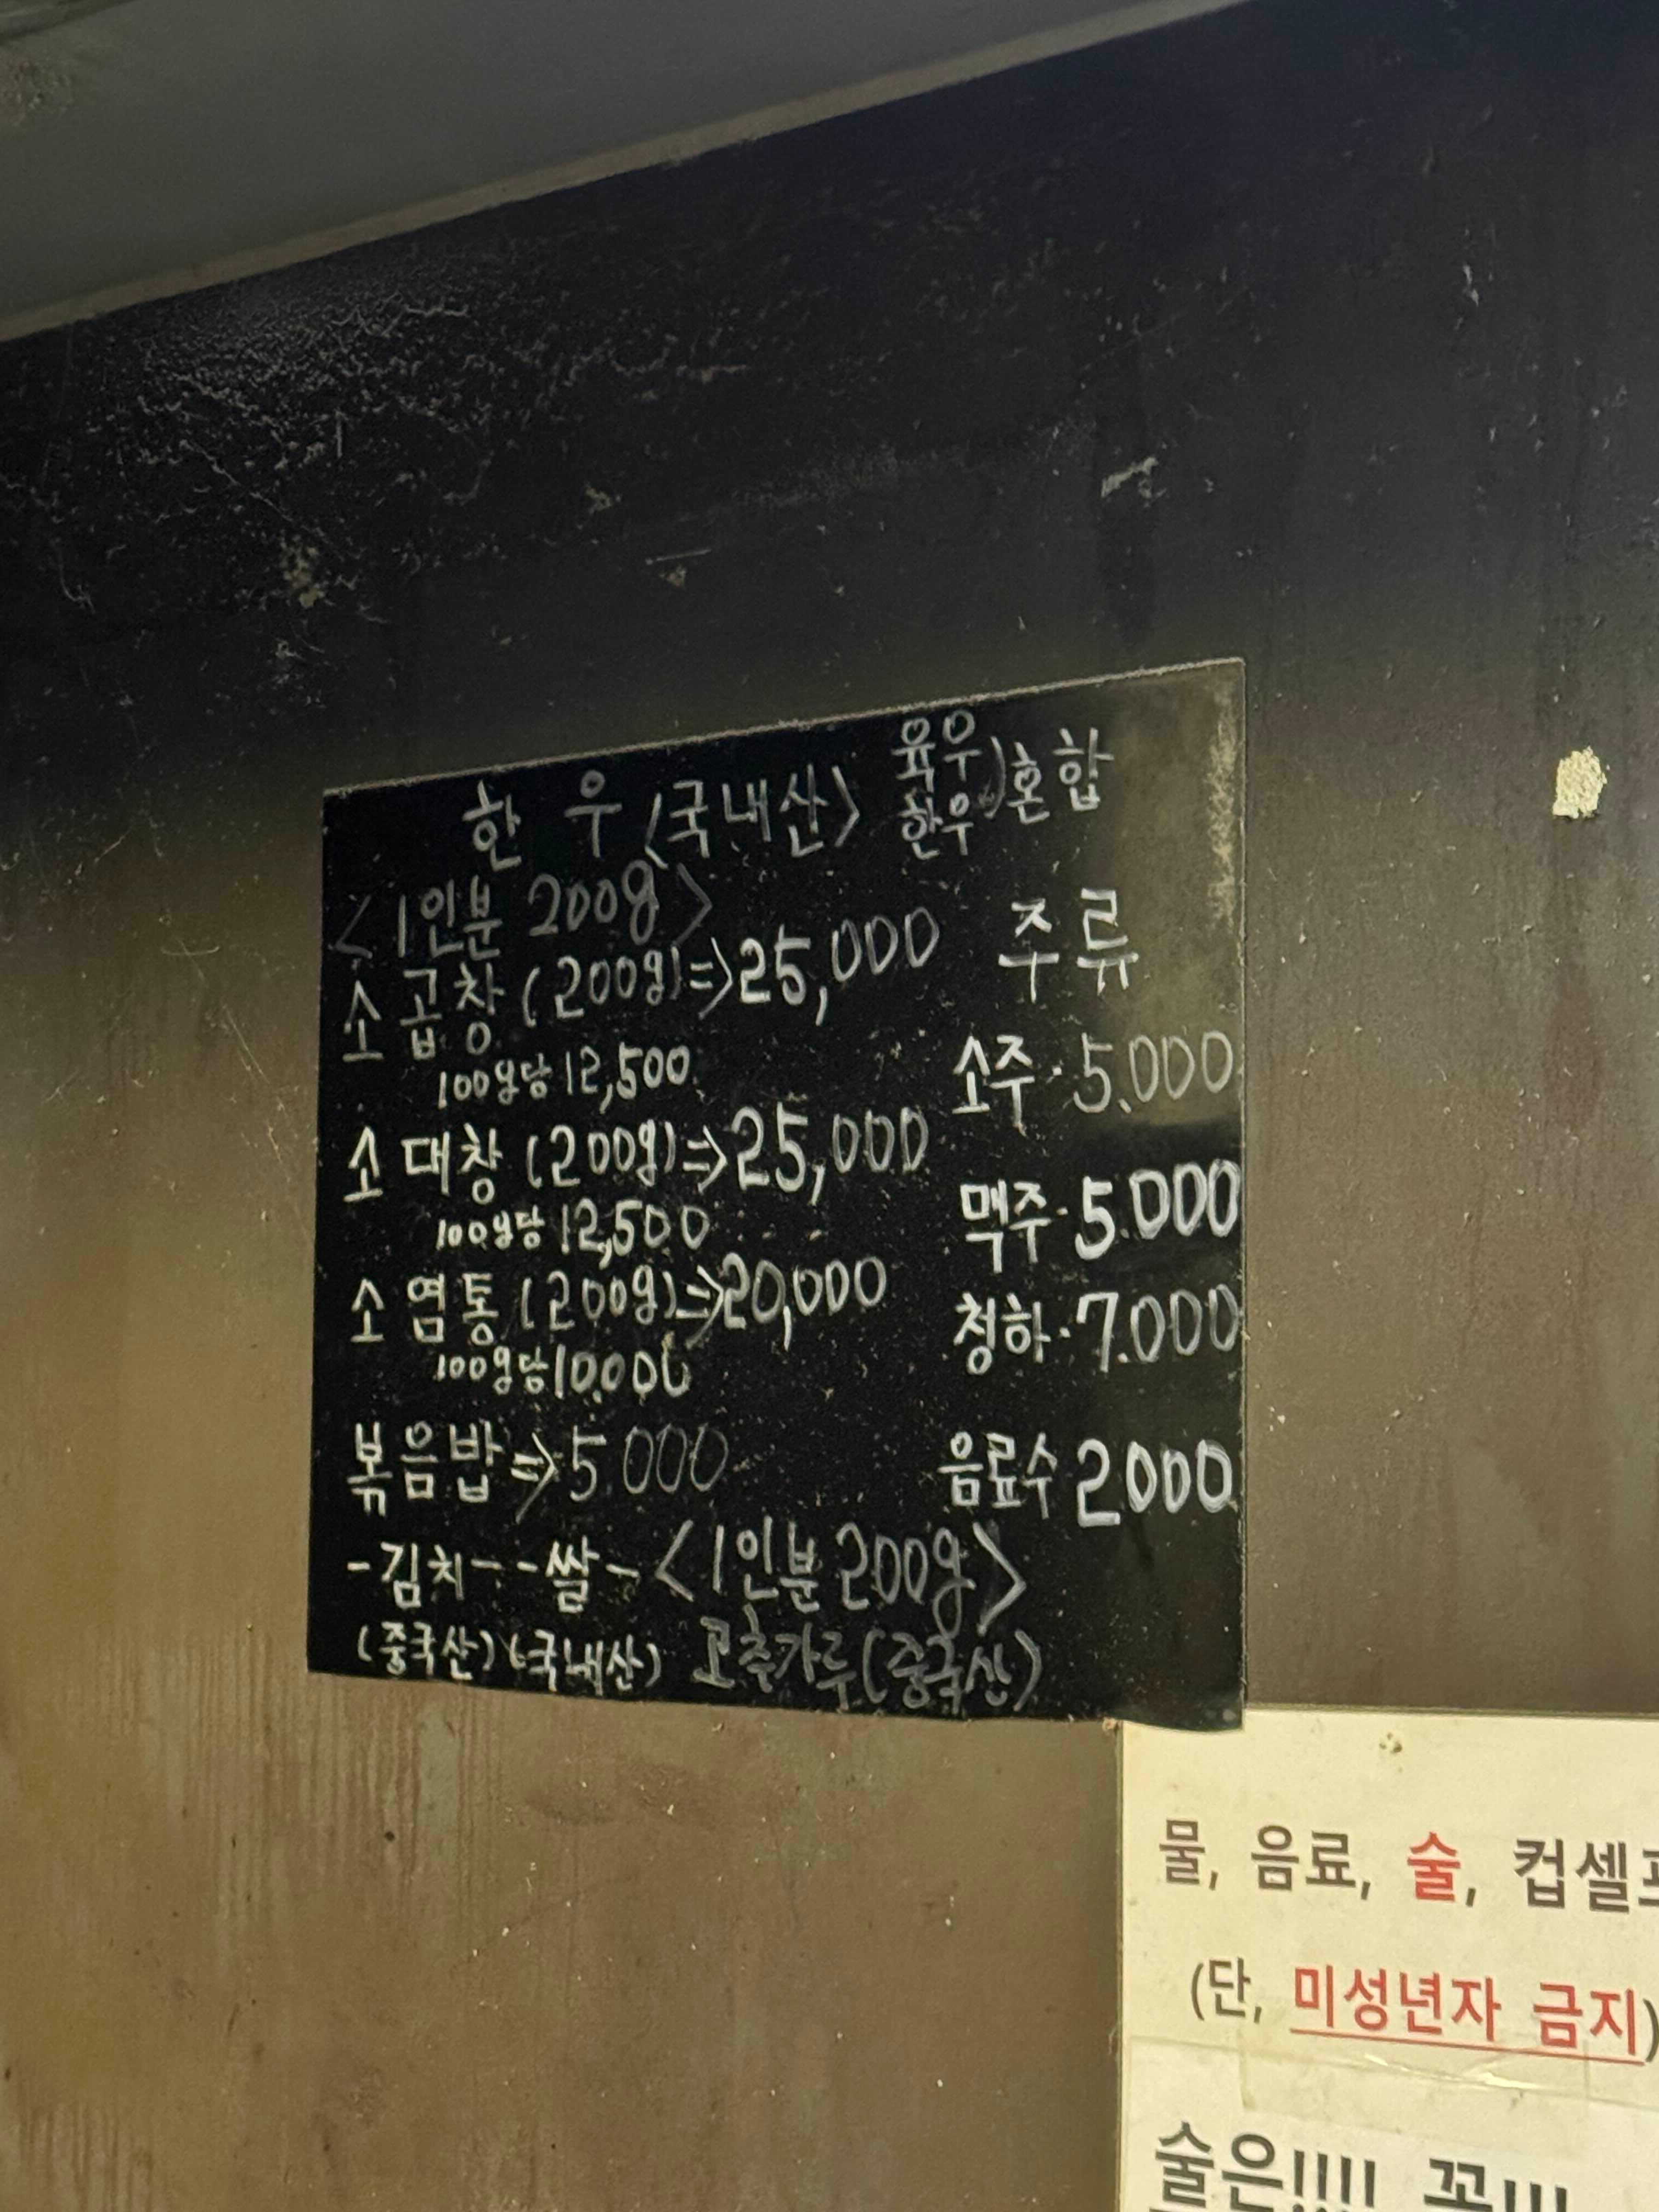 한 우 <국내산> 육우 한우 ) 혼합
<1인분 200g>
소 곱창 (200g) => 25,000
100g당 12,500
소 대창 (200g) => 25,000
100g당 12,500
소 염통 (200g) => 20,000
100g당 10.000
볶음밥 => 5.000
-김치- -쌀- <1인분 200g>
(중국산) (국내산) 고추가루 (중국산)
주류
소주 · 5.000
맥주 · 5.000
청하 · 7.000
음료수 2000
물, 음료, 술, 컵셀
(단, 미성년자 금지)
술은!!!! 꼭!!!